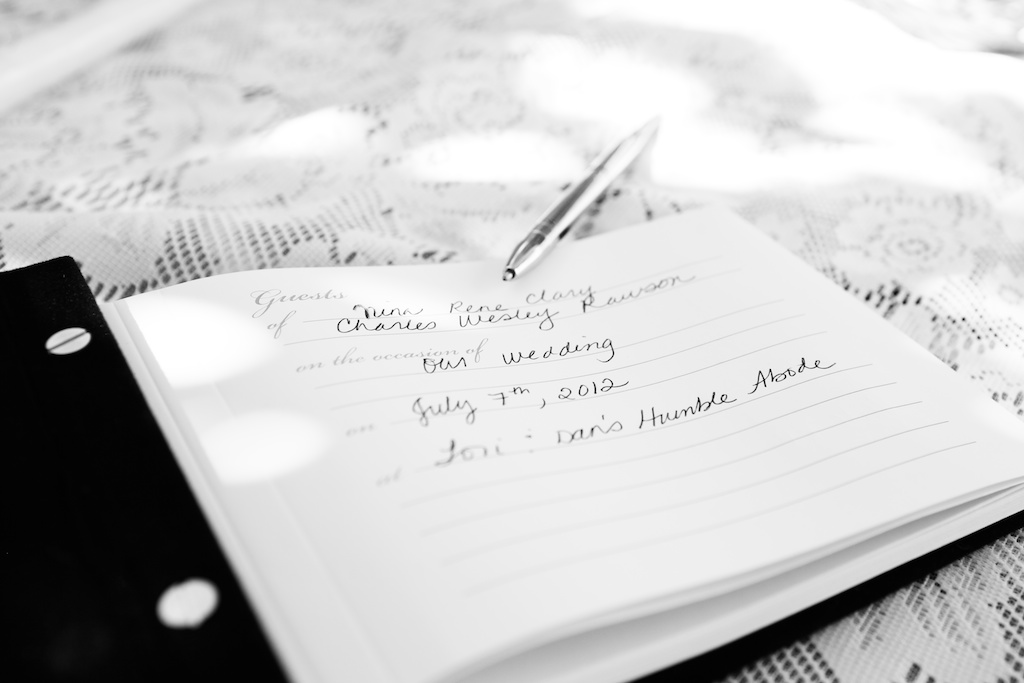 Guests Nina Rene Clary
of Charles Wesley Rawson
on the occasion of
our wedding
on July 7th, 2012
at Lori : Dan's Humble Abode